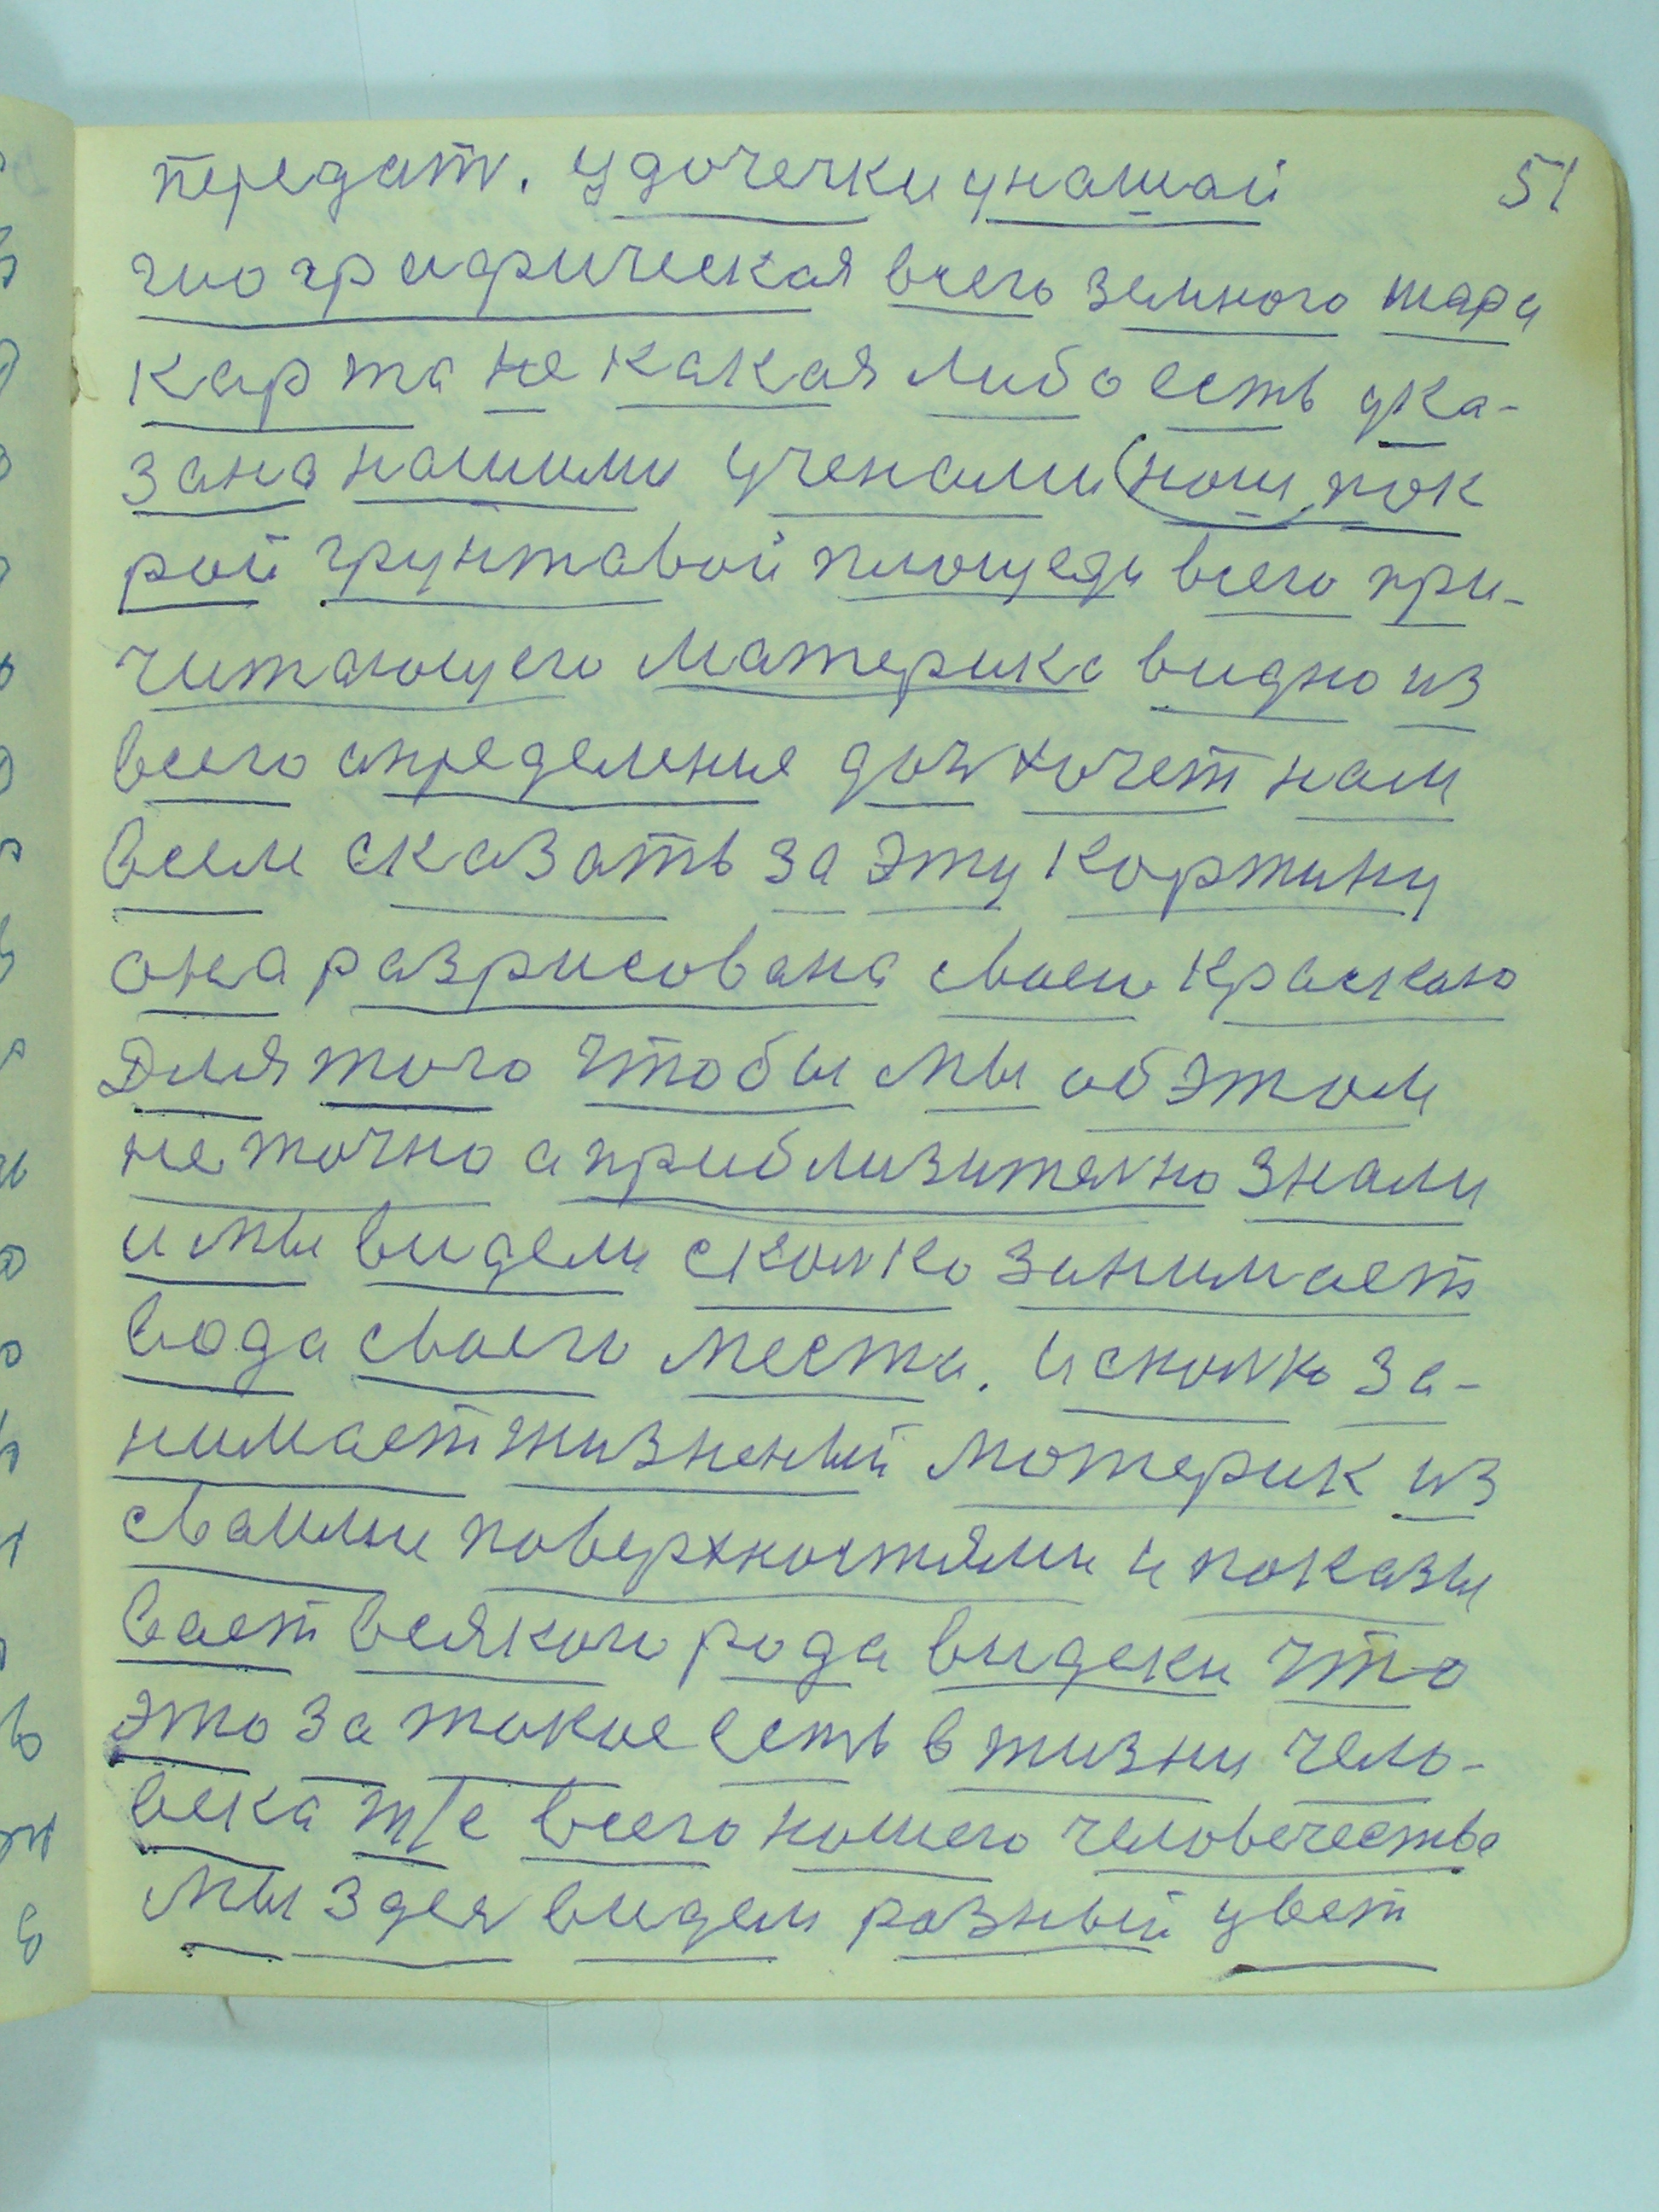 передат. У дочечки унашай 51
гиографическая всего земного шара
карта не какая либо есть ука-
зана нашими ученами (наш) пок
рой грунтавой площеди всего при-
читающего материка видно из
всего определение доч хочет нам
всем сказать за эту кортину
она разрисована сваеи краскою
Для того чтобы мы об этом
не точно а приблизително знали
и мы видели сколко занимает
вода сваего места. И сколко за-
нимает жизненый мотерик из
сваими поверхностями и показы
вает всякого рода видеки что
это за такое есть в жизни чело-
века т/е всего нашего человечества
Мы здея видем разный цвет